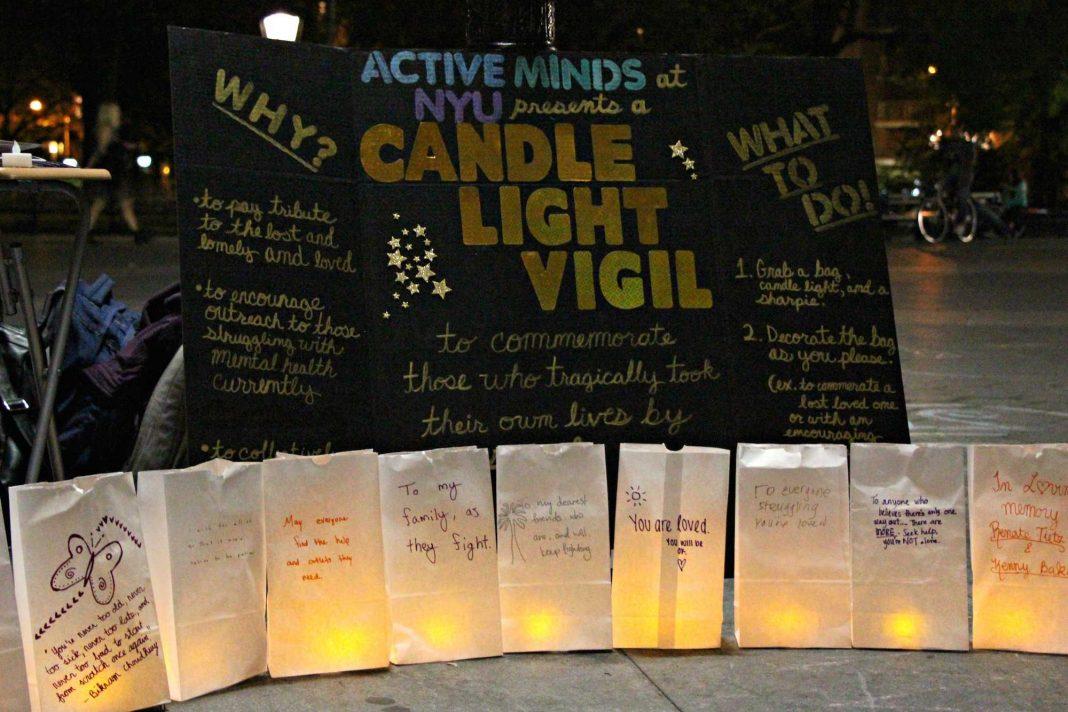 WHY?
• to pay tribute
to the lost and
lonely and loved
• to encourage
outreach to those
struggling with
mental health
currently
ACTIVE MINDS at
NYU presents a
CANDLE
LIGHT
VIGIL
to commemorate
those who tragically took
their own lives by
WHAT
TO
DO!
1. Grab a bag,
candle light, and a
sharpie.
2. Decorate the bag
as you please.
(ex. to commerate a
lost loved one
or with an
encouraging
"You're never too old, never
too sick, never too late, and
never too bad to start
from scratch once again"
- Bikram Choudhury
May everyone
find the help
and outlets they
need.
To my
family, as
they fight.
To my dearest
friends who
are, and will
keep fighting
You are loved.
You will be
ok.
To everyone
struggling
You're loved
To anyone who
believes there's only one
way out... There are
MORE. Seek help,
you're NOT alone.
In Lovin
memory
Renate
&
Kenny